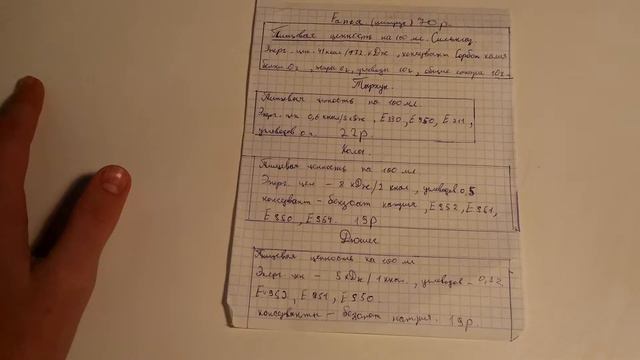 Fanta (цитрус) 70 р.
Пищевая ценность на 100 мл.
Энерг. цен. 41 ккал/172 кДж, консервант Сорбат калия
белки 0 г, жира 0 г, углеводы 10 г, общие сахара 10 г.
Тархун
Пищевая ценность на 100 мл.
Энерг. цен 0,6 ккал/3 кДж, E330, E950, E211,
углеводов 0 г. 22р
Кола
Пищевая ценность на 100 мл
Энерг. цен - 8 кДж/2 ккал, углеводов 0,5
консервант - бензоат натрия, E952, E961,
E950, E954. 19р
Дюшес
Пищевая ценность на 100 мл
Энерг. цен - 5 кДж/1 ккал, углеводов -
E951, E950.
консерванты - бензоат натрия. 19р.